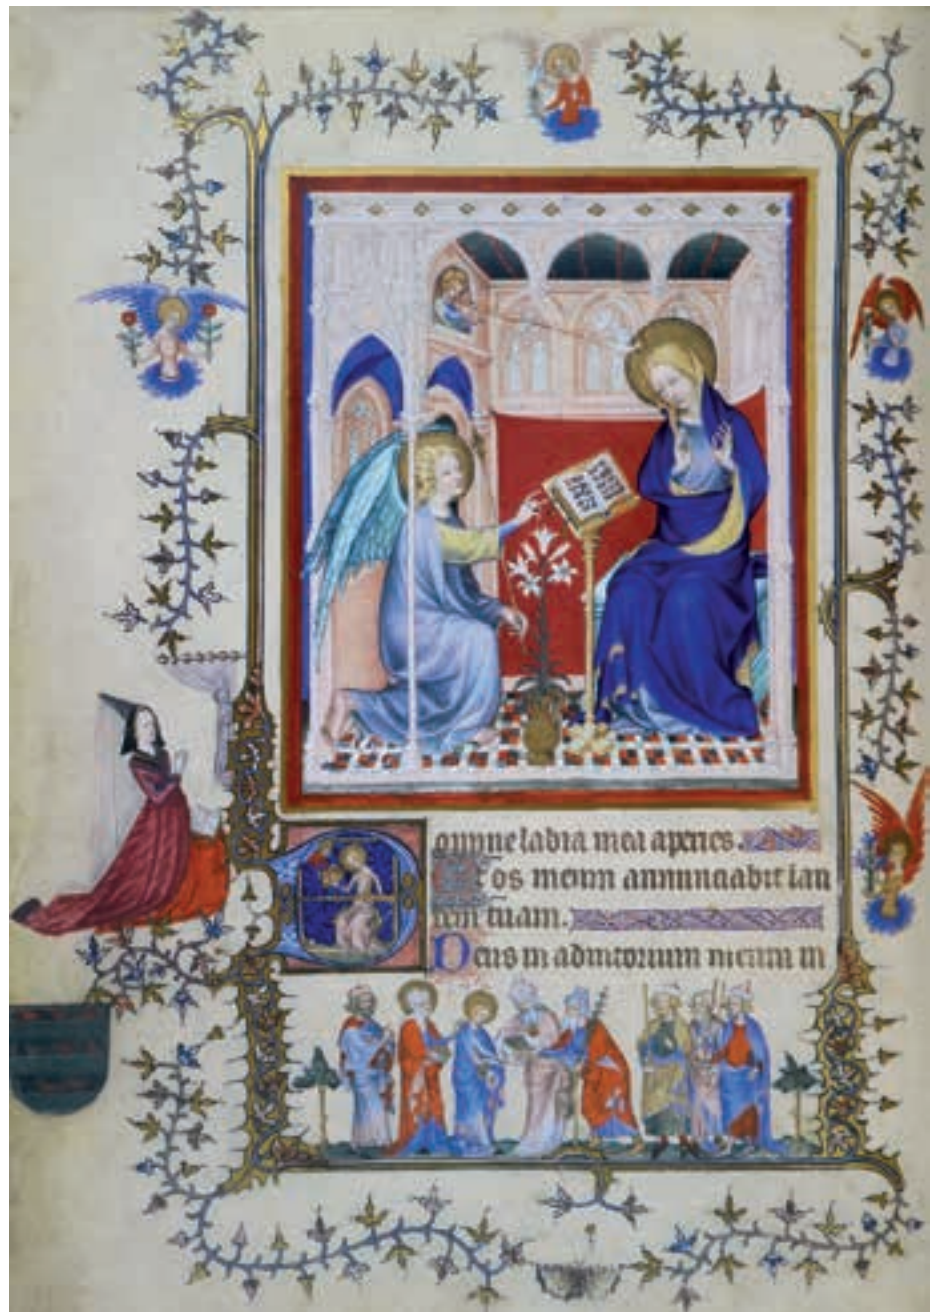 omine labia mea aperies.
Et os meum annunciabit lau
dem tuam.
Deus in adiutorium meum in